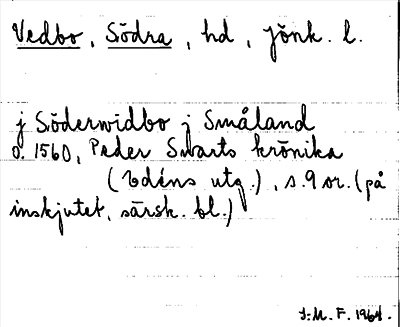 Vedbo, Södra, hd, Jönk. l.
j Söderwidbo j Småland
o. 1560, Peder Swarts krönika
(Edéns utg.), s. 9 or. (på
inskjutet, särsk. bl.)
J.M. F. 1964.